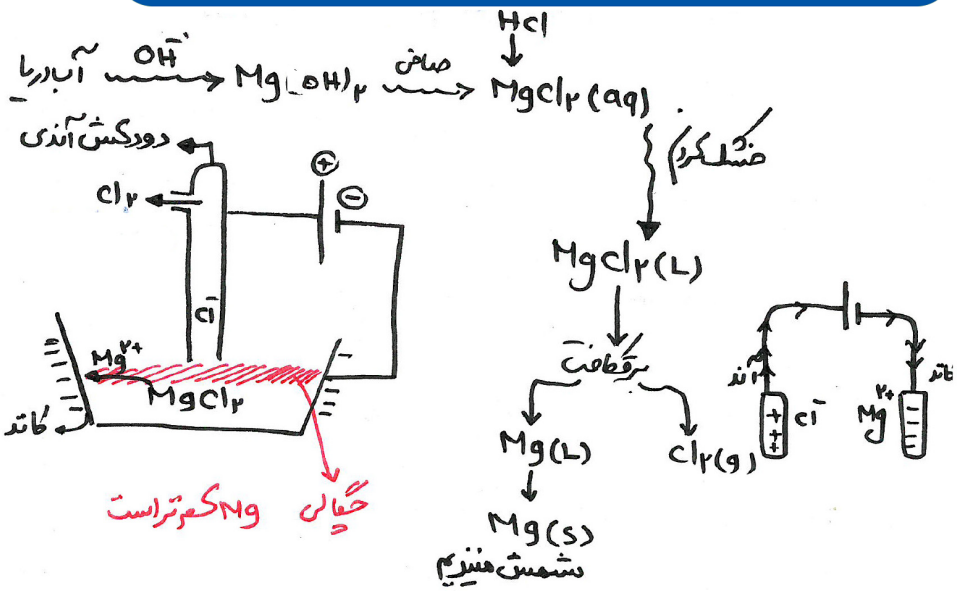 آب دریا OH⁻ Mg(OH)۲ صافی MgCl۲(aq) HCl
خشک کردن
MgCl۲(L)
برقکافت
Mg(L) Cl۲(g)
Mg(s)
شمش منیزیم
دودکش آندی
Cl۲
+ −
Cl⁻
Mg۲+
MgCl۲
کاتد
−
چگالی Mg کمتر است
آند کاتد
+ + + Cl⁻ Mg۲+ − − − −